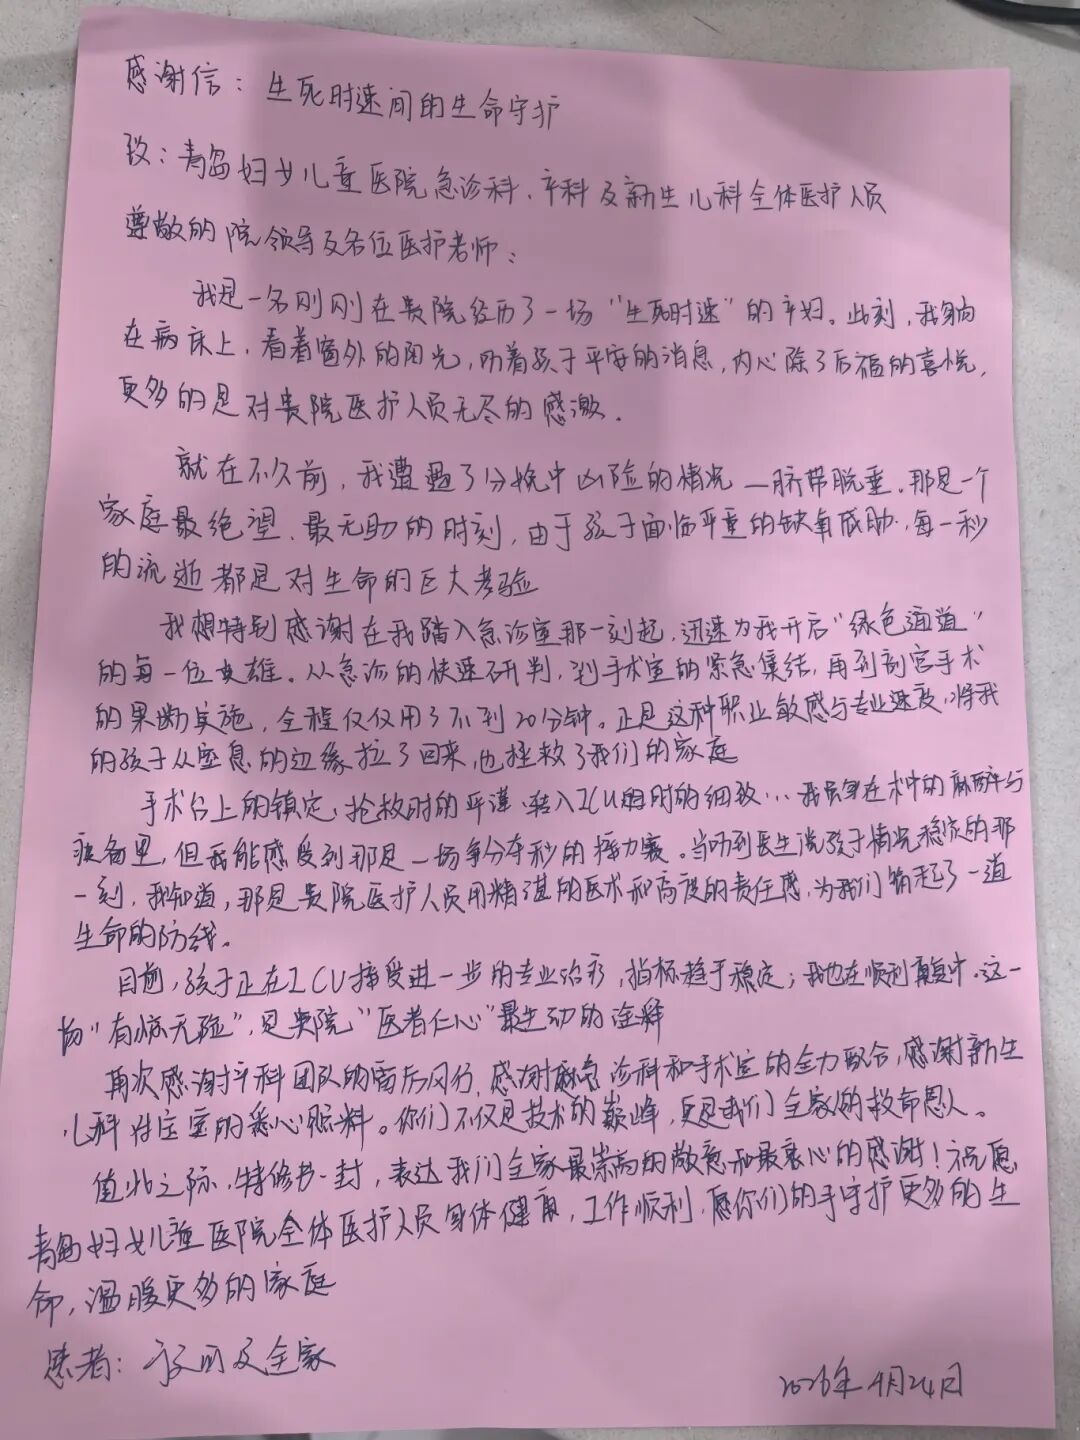 感谢信：生死时速间的生命守护
致：青岛妇女儿童医院急诊科、产科及新生儿科全体医护人员
尊敬的院领导及各位医护老师：
我是一名刚刚在贵院经历了一场“生死时速”的产妇。此刻，我躺
在病床上，看着窗外的阳光，听着孩子平安的消息，内心除了后福的喜悦，
更多的是对贵院医护人员无尽的感激．
就在不久前，我遭遇了分娩中凶险的情况—脐带脱垂．那是一个
家庭最绝望、最无助的时刻，由于孩子面临严重的缺氧威胁，每一秒
的流逝都是对生命的巨大考验
我想特别感谢在我踏入急诊室那一刻起，迅速为我开启“绿色通道”
的每一位英雄。从急诊的快速研判，到手术室的紧急集结，再到剖宫手术
的果断实施，全程仅仅用了不到20分钟。正是这种职业敏感与专业速度，将我
的孩子从窒息的边缘拉了回来，也拯救了我们的家庭
手术台上的镇定、抢救时的严谨、转入ICU时的细致…我虽身在术中的麻醉与
疲惫里，但我能感受到那是一场争分夺秒的接力赛。当听到医生说孩子情况稳定的那
一刻，我知道，那是贵院医护人员用精湛的医术和高度的责任感，为我们筑起了一道
生命的防线。
目前，孩子正在ICU接受进一步的专业治疗，指标趋于稳定；我也在顺利康复中．这一
场“有惊无险”，是贵院“医者仁心”最生动的诠释
再次感谢产科团队的雷厉风行、感谢急诊科和手术室的全力配合，感谢新生
儿科住宝室的悉心照料。你们不仅是技术的巅峰，更是我们全家的救命恩人。
值此之际，特修书一封，表达我们全家最崇高的敬意和最衷心的感谢！祝愿
青岛妇女儿童医院全体医护人员身体健康，工作顺利，愿你们的手守护更多的生
命，温暖更多的家庭
患者：及全家
2026年4月24日